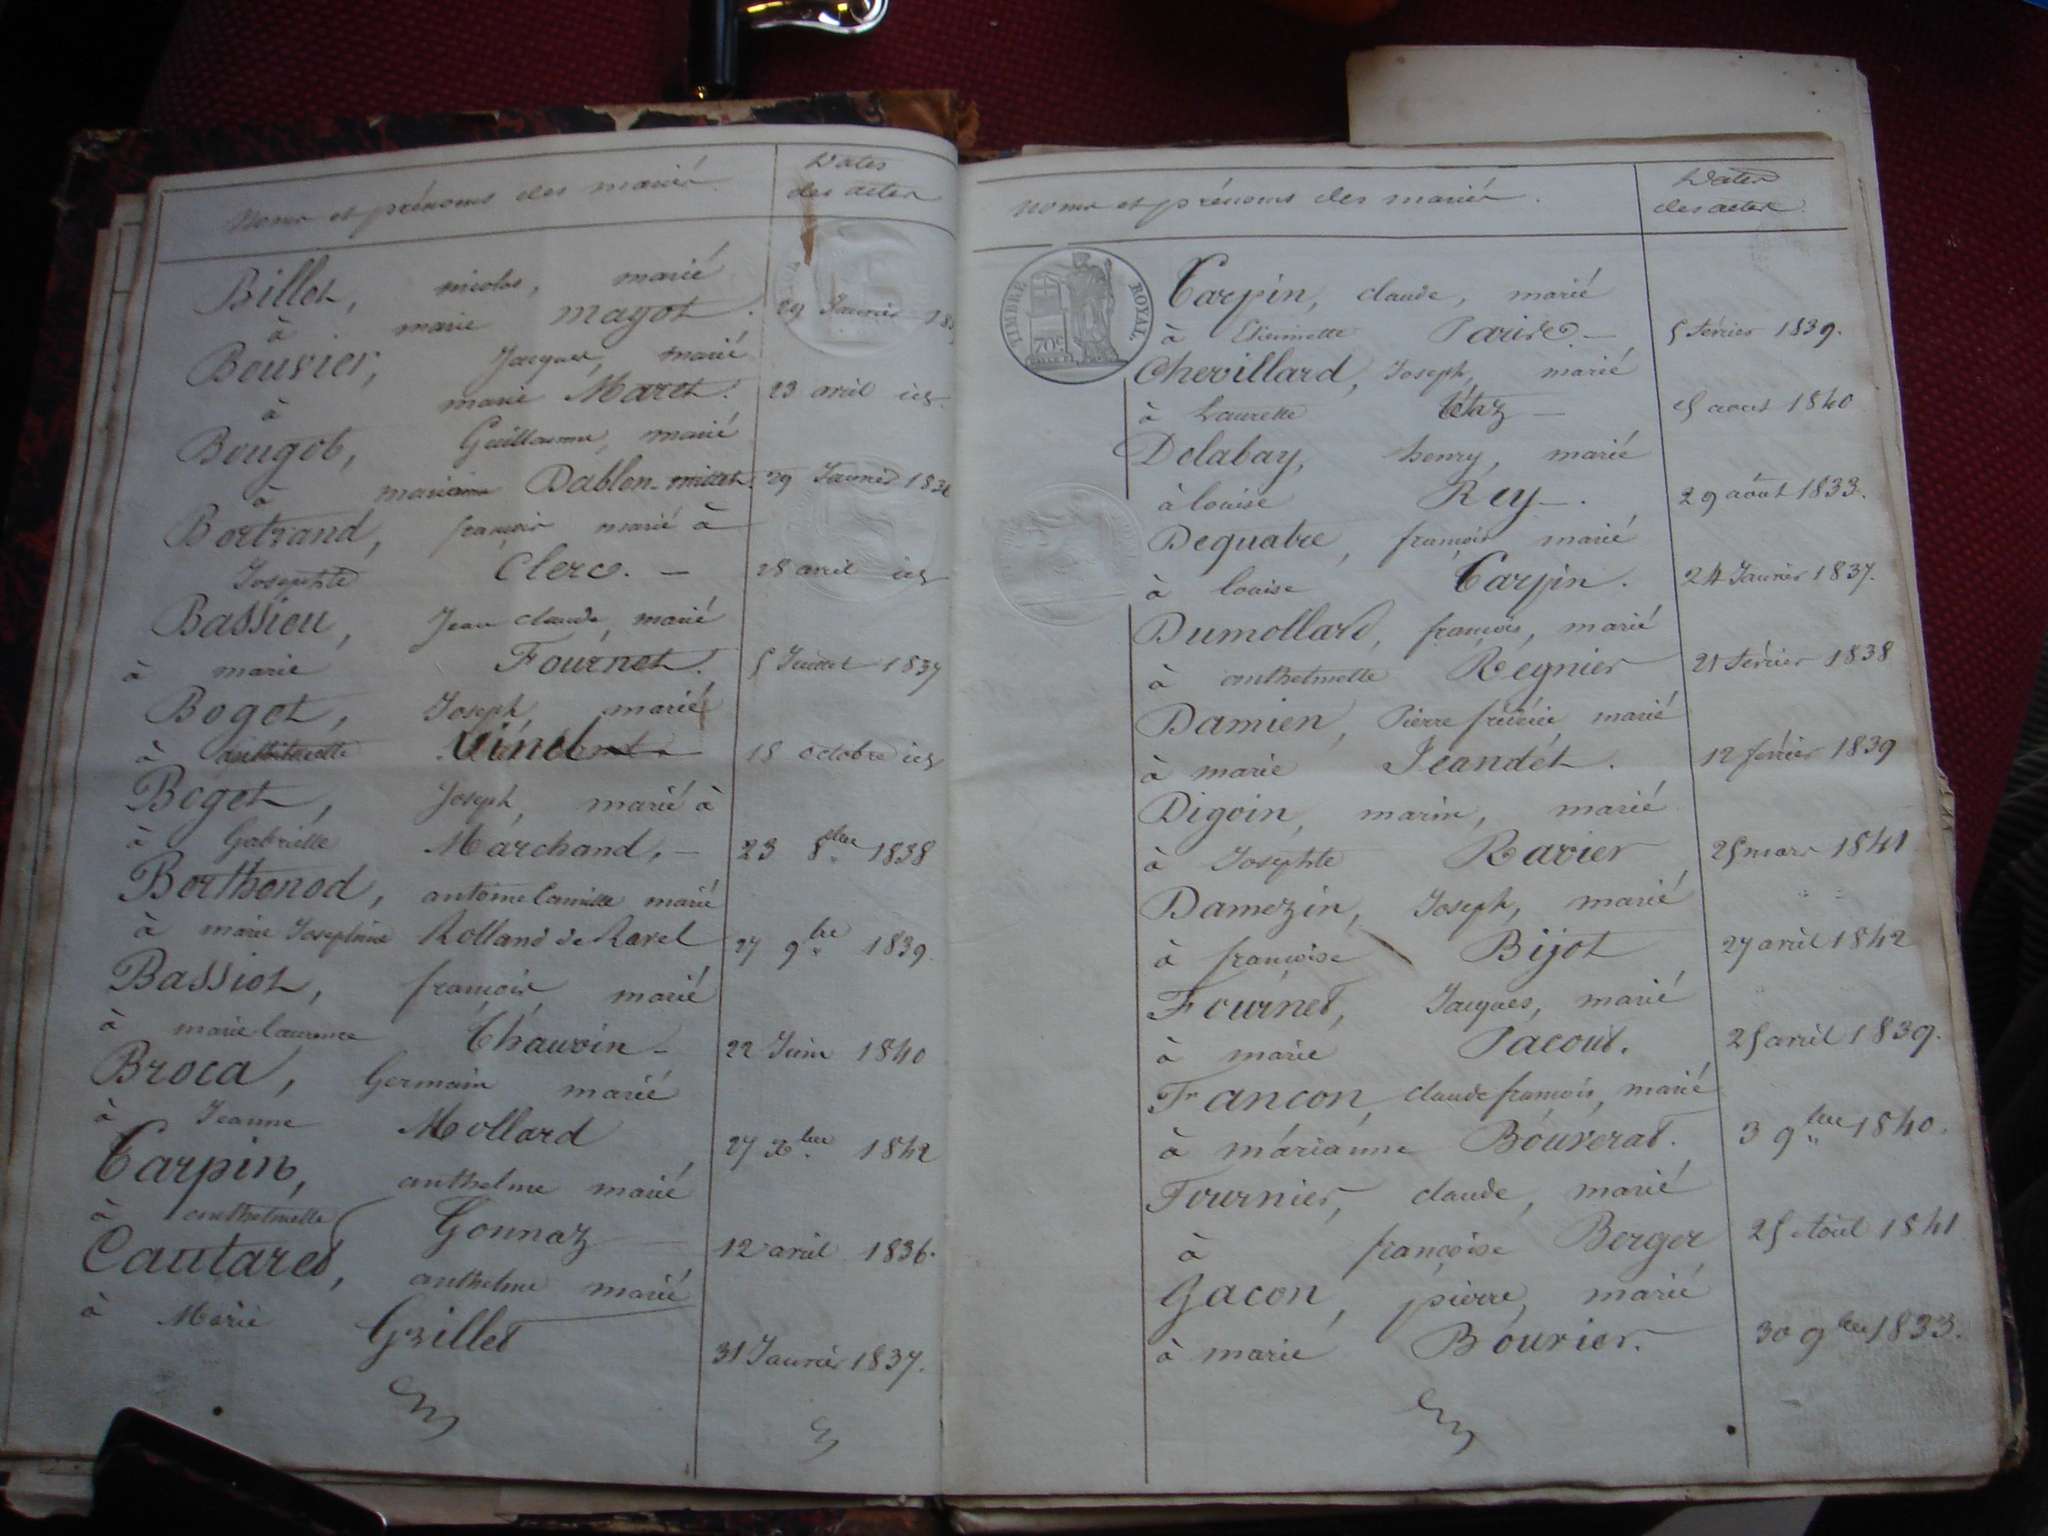 Noms et prénoms des mariés
Dates
des actes
Billet, nicolas, marié
à marie Magot. 29 Janvier
Bouvier, Jacques, marié
à marie Maret. 23 avril id.
Bougot, Guillaume, marié
à marianne Dablon-millet 29 Janvier
Bertrand, françois marié à
Josephte Clerc. - 28 avril id.
Bassieu, Jean claude, marié
à marie Fournet. 5 Juillet 1837
Boget, Joseph, marié
à Vinel 18 octobre id.
Boget, Joseph, marié à
à Gabrielle Marchand, - 23 8bre 1838
Berthenod, antoine Camille marié
à marie Josephine Rolland de Ravel 27 9bre 1839.
Bassiot, françois, marié
à marie laurence Chauvin - 22 Juin 1840
Broca, Germain marié
à Jeanne Mollard 27 Xbre 1842
Carpin, anthelme marié
à anthelmette Gonnaz 12 avril 1836.
Cautaret, anthelme marié
à Marie Grillet 31 Janvier 1837.
Noms et prénoms des mariés.
Dates
des actes
TIMBRE ROYAL.
70c
Carpin, claude, marié
à Etiennette Parise. - 5 février 1839.
Chevillard, Joseph, marié
à Laurette Tétaz - 25 aout 1840
Delabay, henry, marié
à louise Rey -. 29 août 1833.
Dequatre, françois marié
à louise Carpin. 24 Janvier 1837.
Dumollard, françois, marié
à anthelmette Régnier 21 février 1838
Damien, Pierre frédéric marié
à marie Jeandet. 12 février 1839
Digoin, marin, marié
à Josephte Ravier 25 mars 1841
Damezin, Joseph, marié
à françoise Bijot 27 avril 1842
Fournet, Jacques, marié
à marie Pacout. 25 avril 1839.
Francon, claude françois, marié
à marianne Bouverat. 3 9bre 1840.
Fournier, claude, marié
à françoise Berger 25 Août 1841
Gacon, pierre, marié
à marie Bouvier. 30 9bre 1833.